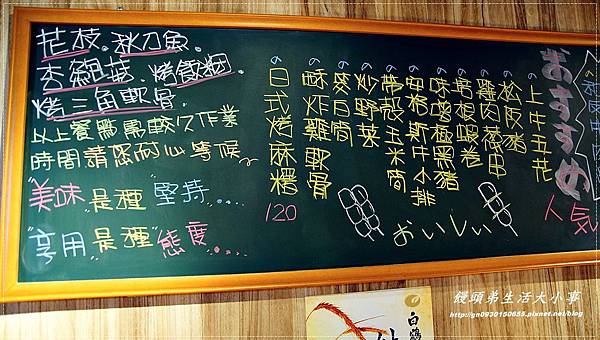 花枝、秋刀魚、
杏鮑菇、烤飯糰、
烤三角軟骨、
以上餐點需較久作業
時間請您耐心等候~
"美味"是種"堅持...
"享用"是種"態度...
おすすめ
人気
上牛五花
松阪豬
雞肉蔥串
蝦卷
味噌極黑豬
安格斯牛小排
帶殼玉米筍
炒野菜
酥炸雞軟骨
日式烤麻糬
120
おいしい
白鶴
饅頭弟生活大小事
http://gn0930150655.pixnet.net/blog